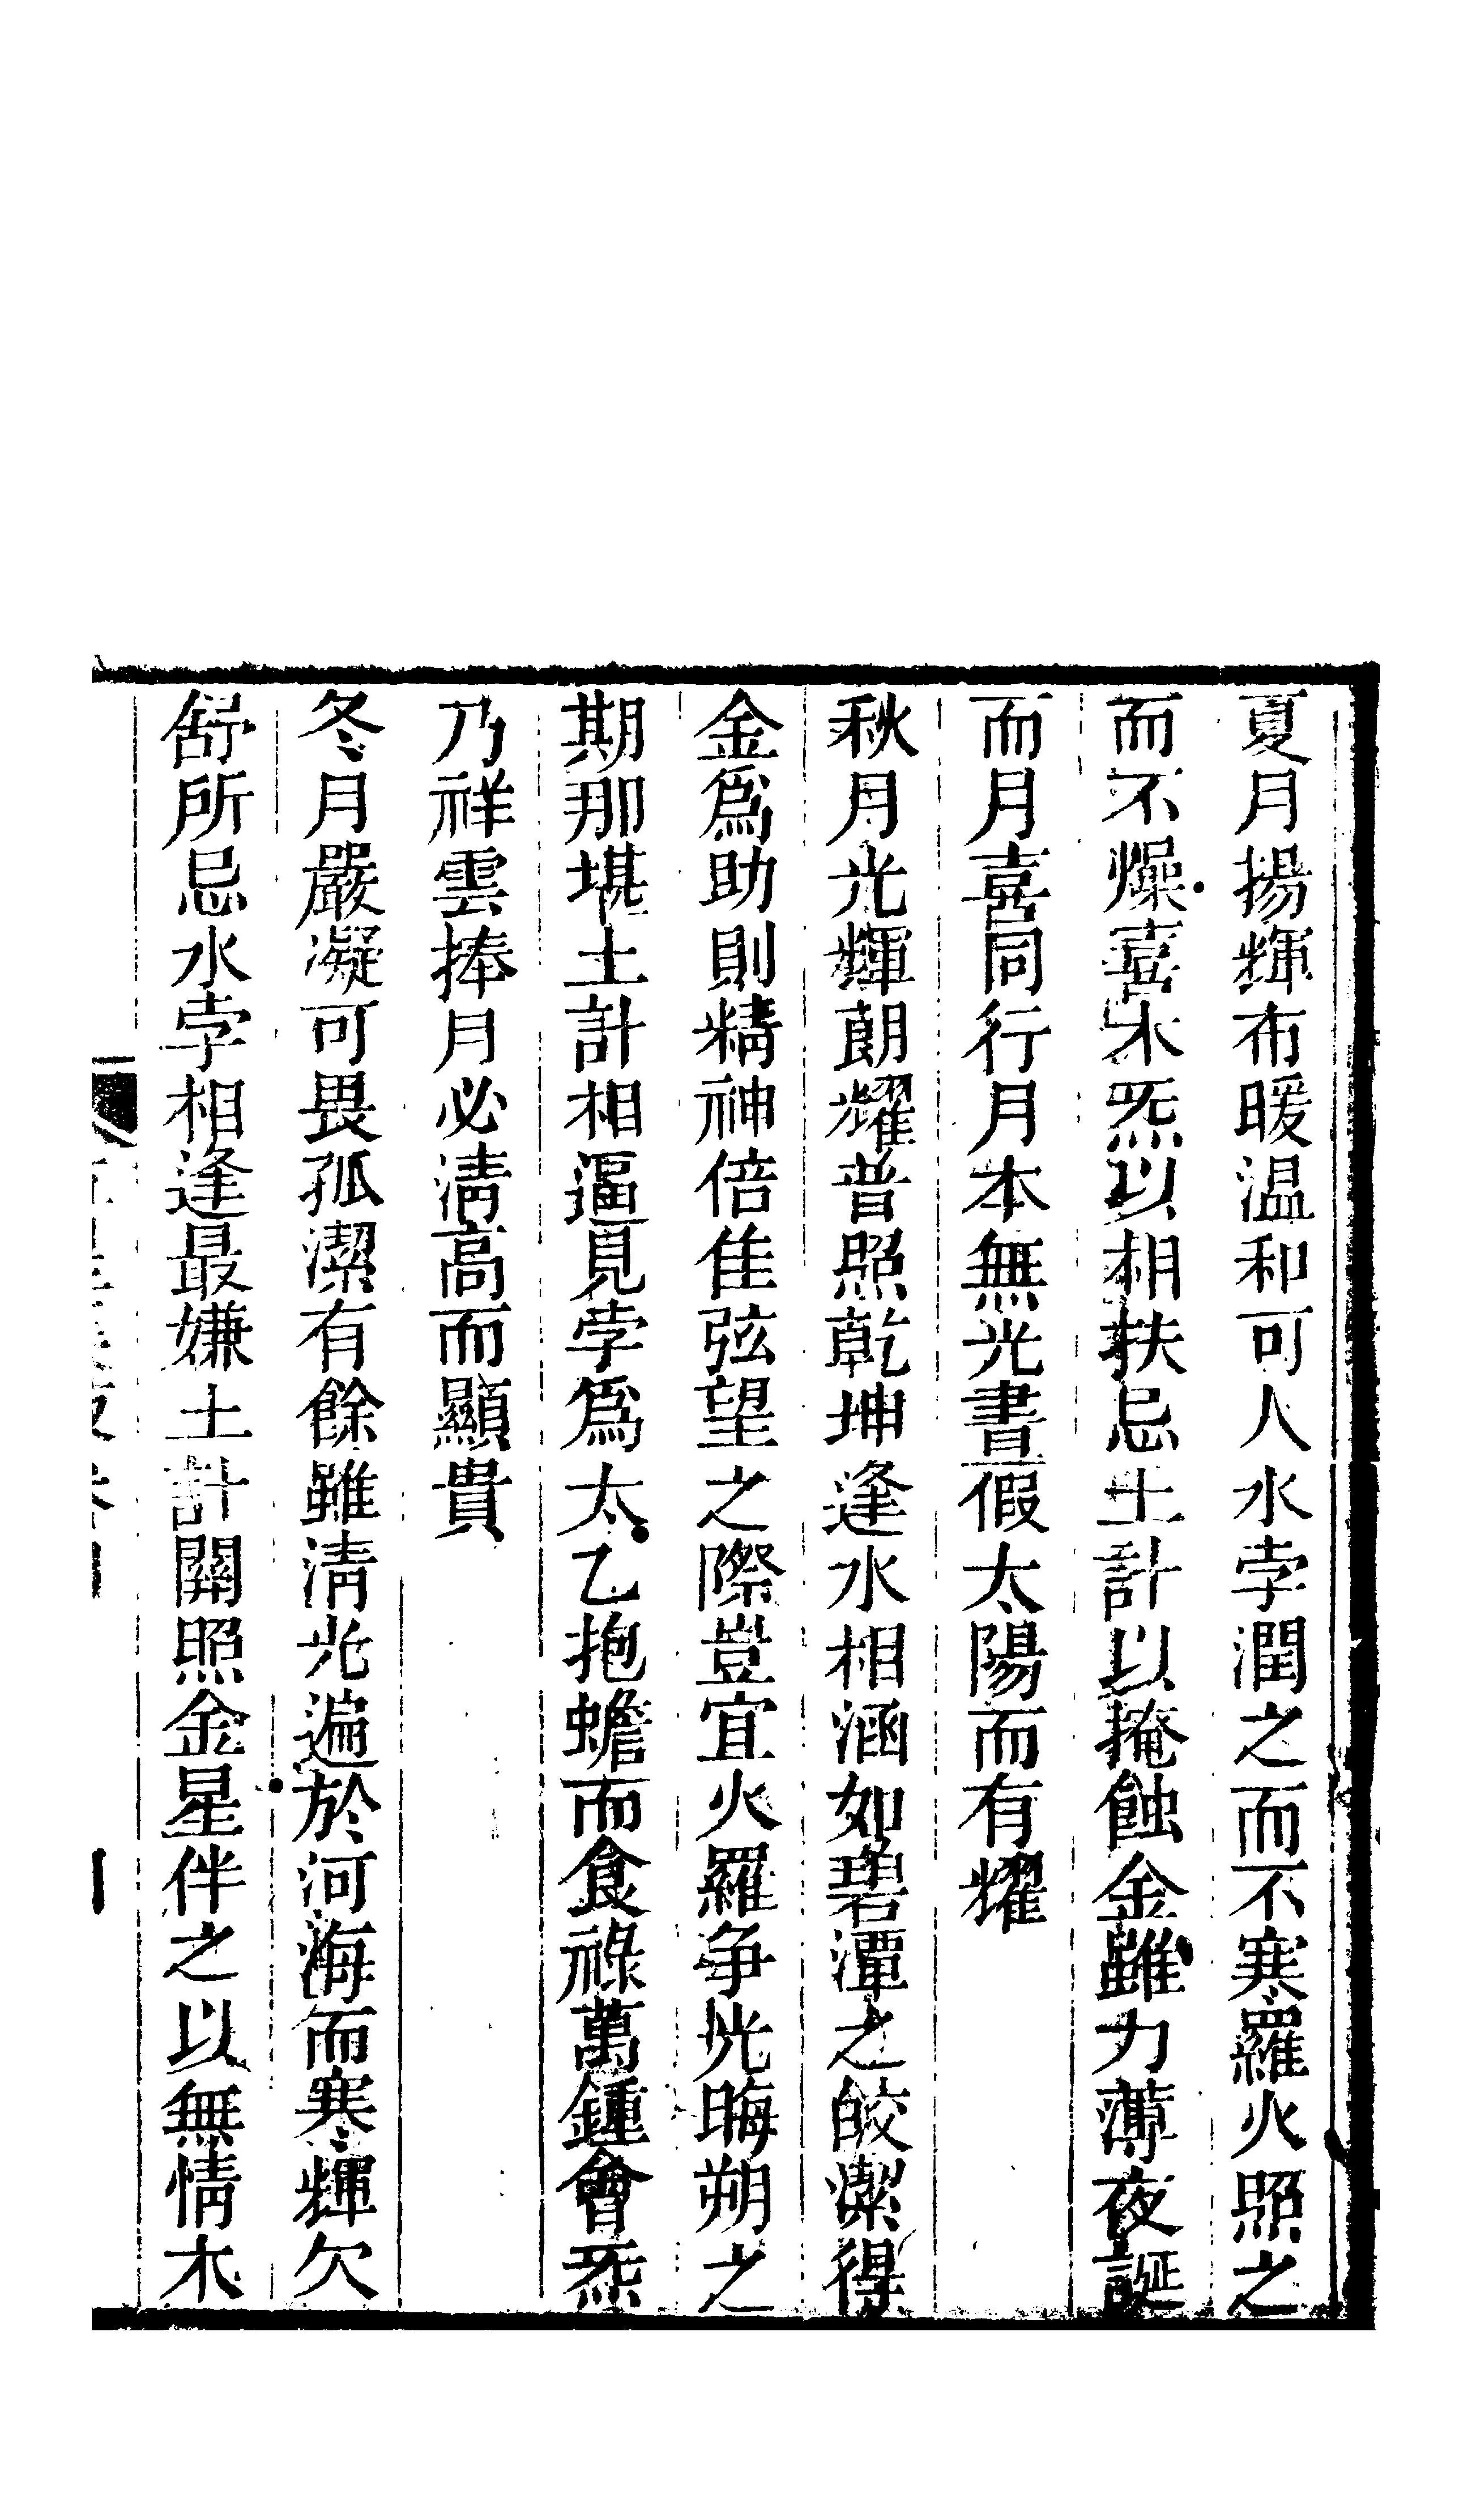 夏月揚輝布暖温和可人水孛潤之而不寒羅火照之
而不燥喜木炁以相扶忌土計以掩蝕金雖力薄夜誕
而月喜同行月本無光晝假太陽而有耀
秋月光輝朗耀普照乾坤逢水相涵如碧潭之皎潔得
金爲助則精神倍佳弦望之際豈宜火羅争光晦朔之
期那堪土計相逼見孛爲太乙抱蟾而食祿萬鍾會炁
乃祥雲捧月必淸高而顯貴
冬月嚴凝可畏孤潔有餘雖淸光遍於河海而寒輝欠
舒所忌水孛相逢最嫌土計關照金星伴之以無情木